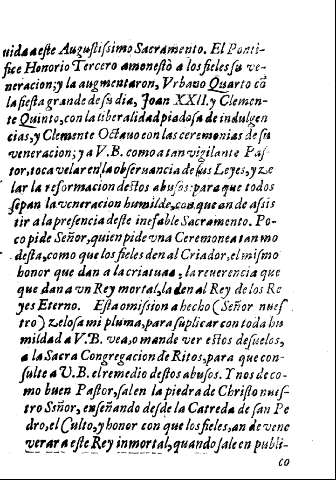 uida a este Augustissimo Sacramento. El Ponti-
fice Honorio Tercero amonestò a los fieles su ve-
neracion; y la augmentaron, Vrbano Quarto cõ
la fiesta grande de su dia, Joan XXII. y Clemen-
te Quinto, con la liberalidad piadosa de indulgen
cias, y Clemente Octauo con las ceremonias de su
veneracion; y a V.B. como a tan vigilante Pas-
tor, toca velar en la obseruancia de sus Leyes, y ze
lar la reformacion destos abusos: para que todos
sepan la veneracion humilde, con que an de assis
tir a la presencia deste inefable Sacramento. Po-
co pide Señor, quien pide vna Ceremonea tan mo
desta, como que los fieles den al Criador, el mismo
honor que dan a la criatura, la reuerencia que
que dan a vn Rey mortal, la den al Rey de los Re
yes Eterno. Esta omission a hecho (Señor nues
tro) zelosa mi pluma, para suplicar con toda hu
mildad a V.B. vea, o mande ver estos desuelos,
a la Sacra Congregacion de Ritos, para que con-
sulte a V.B. el remedio destos abusos. Y nos de co-
mo buen Pastor, sal en la piedra de Christo nues-
tro Señor, enseñando desde la Catreda de san Pe
dro, el Culto, y honor con que los fieles, an de vene
verar a este Rey inmortal, quando sale en publi-
co